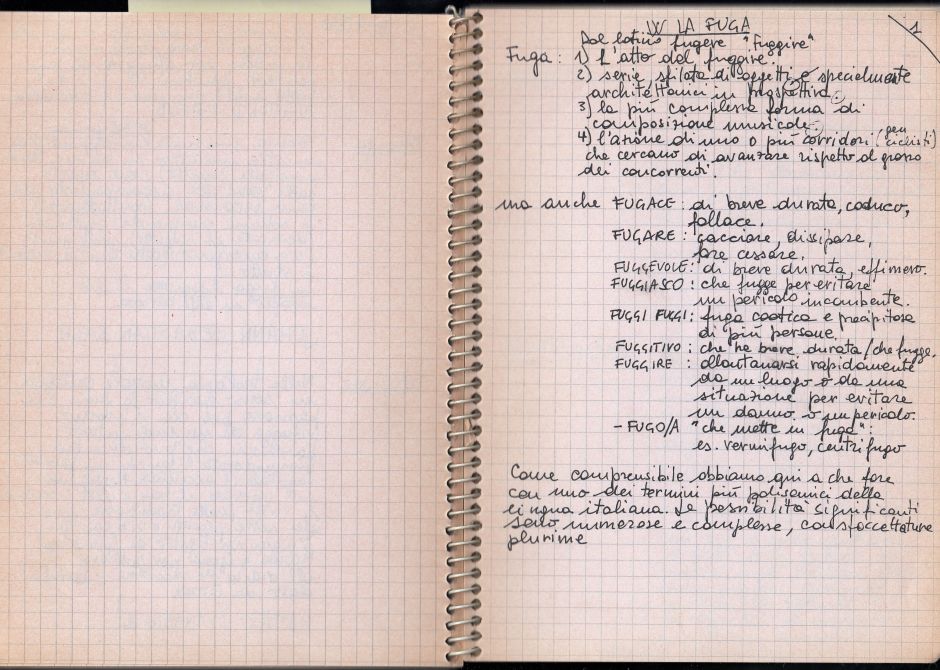 W LA FUGA
1
Dal latino fugere "Fuggire"
Fuga: 1) L'atto del fuggire.
2) serie, sfilata di oggetti e specialmente
architettonici in prospettiva.
3) la più complessa forma di
composizione musicale.
4) l'azione di uno o più corridori (gen ciclisti)
che cercano di avanzare rispetto al grosso
dei concorrenti.
ma anche FUGACE: di breve durata, caduco,
fallace.
FUGARE: cacciare, dissipare,
fare cessare.
FUGGEVOLE: di breve durata, effimero.
FUGGIASCO: che fugge per evitare
un pericolo incombente.
FUGGI FUGGI: fuga caotica e precipitosa
di più persone.
FUGGITIVO: che ha breve durata/che fugge.
FUGGIRE: allontanarsi rapidamente
da un luogo o da una
situazione per evitare
un danno o un pericolo.
-FUGO/A "che mette in fuga":
es. vermifugo, centrifugo
Come comprensibile abbiamo qui a che fare
con uno dei termini più polisemici della
lingua italiana. Le possibilità significanti
sono numerose e complesse, con sfaccettature
plurime